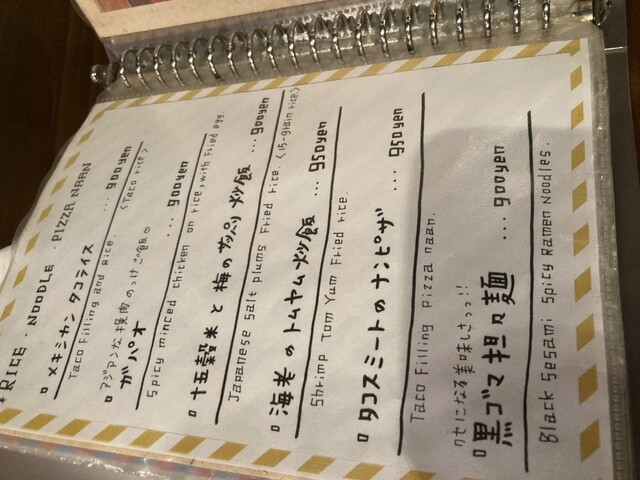 *RICE・NOODLE・PIZZA NAAN
▫メキシカン タコライス ... 900yen
Taco Filling and Rice. 〈Taco rice〉
▫アジアンな挽肉のっけご飯☺
ガパオ ... 900yen
Spicy minced chicken on rice, with Fried egg.
▫十五穀米と梅のサッパリ炒飯 ... 900yen
Japanese Salt plums Fried rice. 〈15-grain rice〉
▫海老のトムヤム炒飯 ... 950yen
Shrimp Tom Yum Fried rice.
▫タコスミートのナンピザ ... 950yen
Taco Filling Pizza naan.
クセになる美味しさっっ!!
▫黒ゴマ担々麺 ... 900yen
Black Sesami Spicy Ramen Noodles.